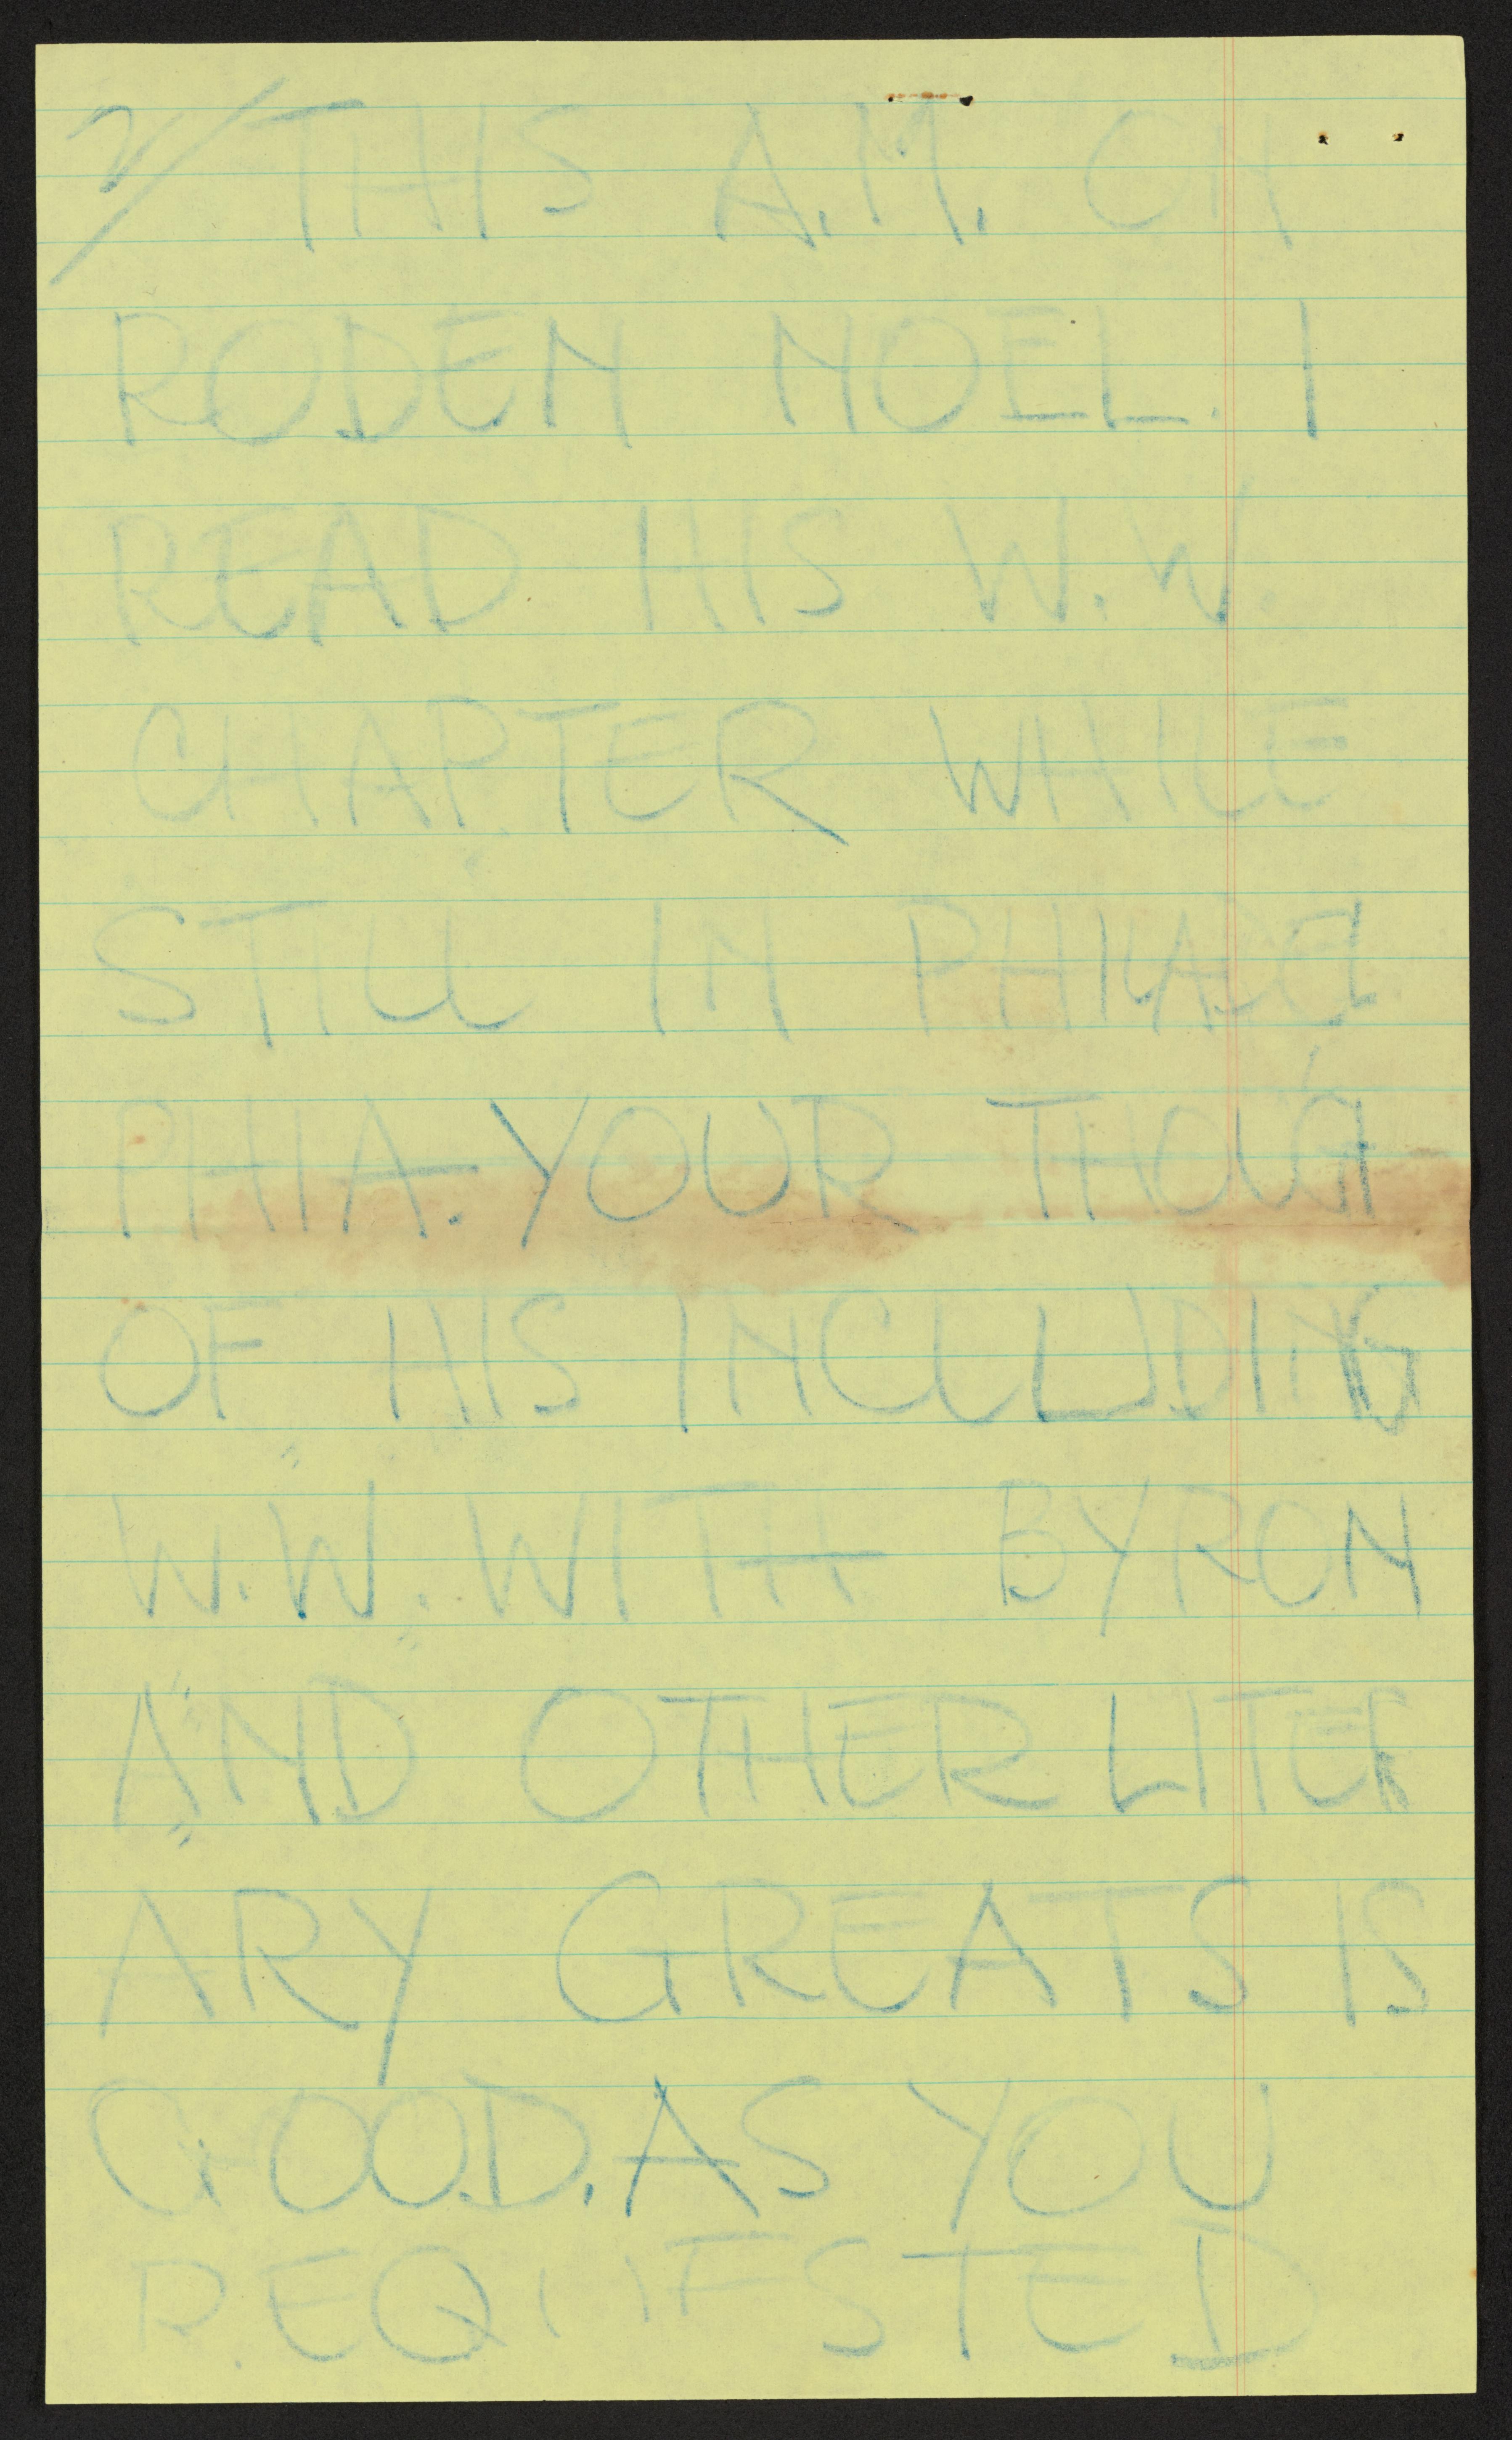 2/ THIS A.M. ON
RODEN NOEL. I
READ HIS W.W.
CHAPTER WHILE
STILL IN PHILADEL
PHIA. YOUR THOUGHT
OF HIS INCLUDING
W.W. WITH BYRON
AND OTHER LITER
ARY GREATS IS
GOOD. AS YOU
REQUESTED